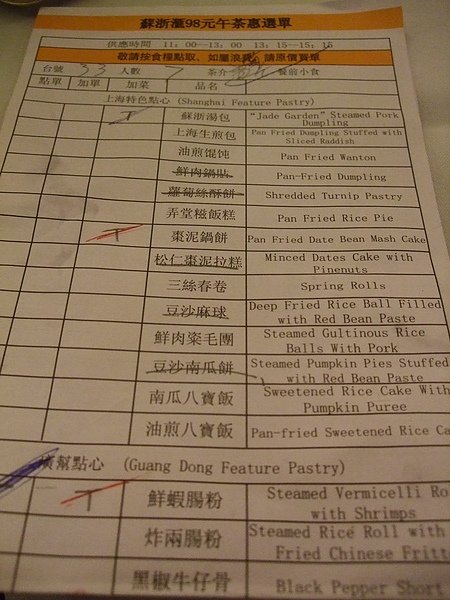 蘇浙滙98元午茶惠選單
供應時間 11：00—13：00 13：15—15：15
敬請按食糧點取、如屬浪費、請原價買單
台號 33 人數 7 茶介 餐前小食
點單 加單 加菜 品名
上海特色點心 (Shanghai Feature Pastry)
T 蘇浙湯包 "Jade Garden" Steamed Pork Dumpling
上海生煎包 Pan Fried Dumpling Stuffed with Sliced Raddish
油煎馄饨 Pan Fried Wanton
鮮肉鍋貼 Pan-Fried Dumpling
蘿蔔絲酥餅 Shredded Turnip Pastry
弄堂糍飯糕 Pan Fried Rice Pie
T 棗泥鍋餅 Pan Fried Date Bean Mash Cake
松仁棗泥拉糕 Minced Dates Cake with Pinenuts
三絲春卷 Spring Rolls
豆沙麻球 Deep Fried Rice Ball Filled with Red Bean Paste
鮮肉粢毛團 Steamed Gultinous Rice Balls With Pork
豆沙南瓜餅 Steamed Pumpkin Pies Stuffed with Red Bean Paste
南瓜八寶飯 Sweetened Rice Cake With Pumpkin Puree
油煎八寶飯 Pan-fried Sweetened Rice Ca
幫點心 (Guang Dong Feature Pastry)
T 鮮蝦腸粉 Steamed Vermicelli Ro with Shrimps
炸兩腸粉 Steamed Rice Roll with Fried Chinese Fritt
黑椒牛仔骨 Black Pepper Short